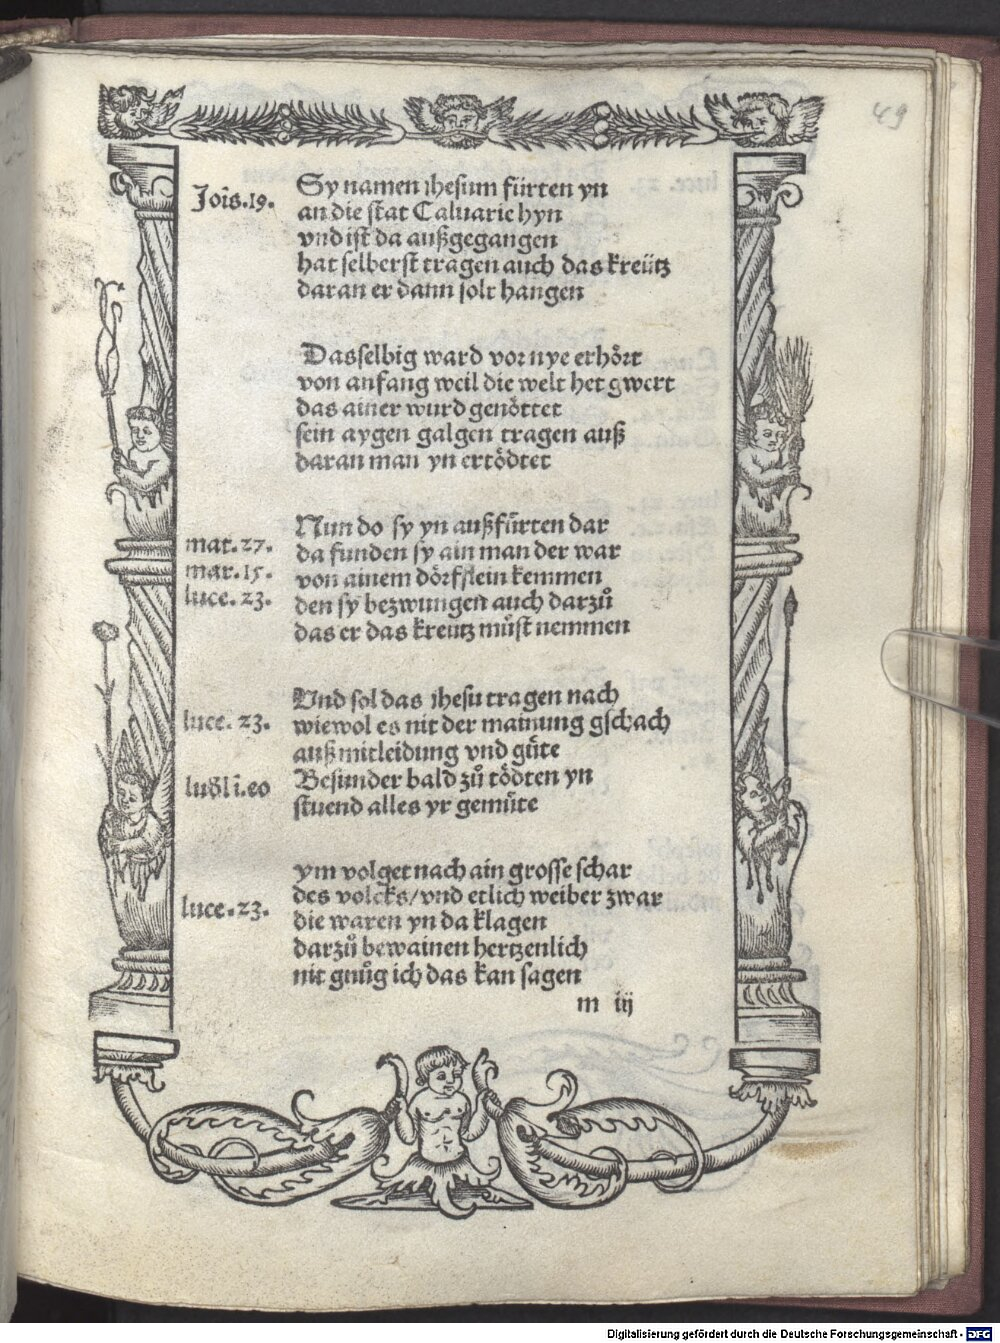 49
Joīs.19.
Sy namen ihesum fürten yn
an die stat Caluarie hyn
vnd ist da außgegangen
hat selberst tragen auch das kreütz
daran er dann solt hangen
Dasselbig ward vor nye erhört
von anfang weil die welt het gwert
das ainer wurd genöttet
sein aygen galgen tragen auß
daran man yn ertödtet
mat.27.
mar.15.
luce.23.
Nun do sy yn außfürten dar
da funden sy ain man der war
von ainem dörfflein kemmen
den sy bezwungen auch darzů
das er das kreutz můst nemmen
luce.23.
Vnd sol das ihesu tragen nach
wiewol es nit der mainung gschach
auß mitleidung vnd güte
Besunder bald zů tödten yn
stuend alles yr gemüte
luce.23.
ym volget nach ain grosse schar
des volcks/vnd etlich weiber zwar
die waren yn da klagen
darzů bewainen hertzenlich
nit gnůg ich das kan sagen
m iij
Digitalisierung gefördert durch die Deutsche Forschungsgemeinschaft - DFG